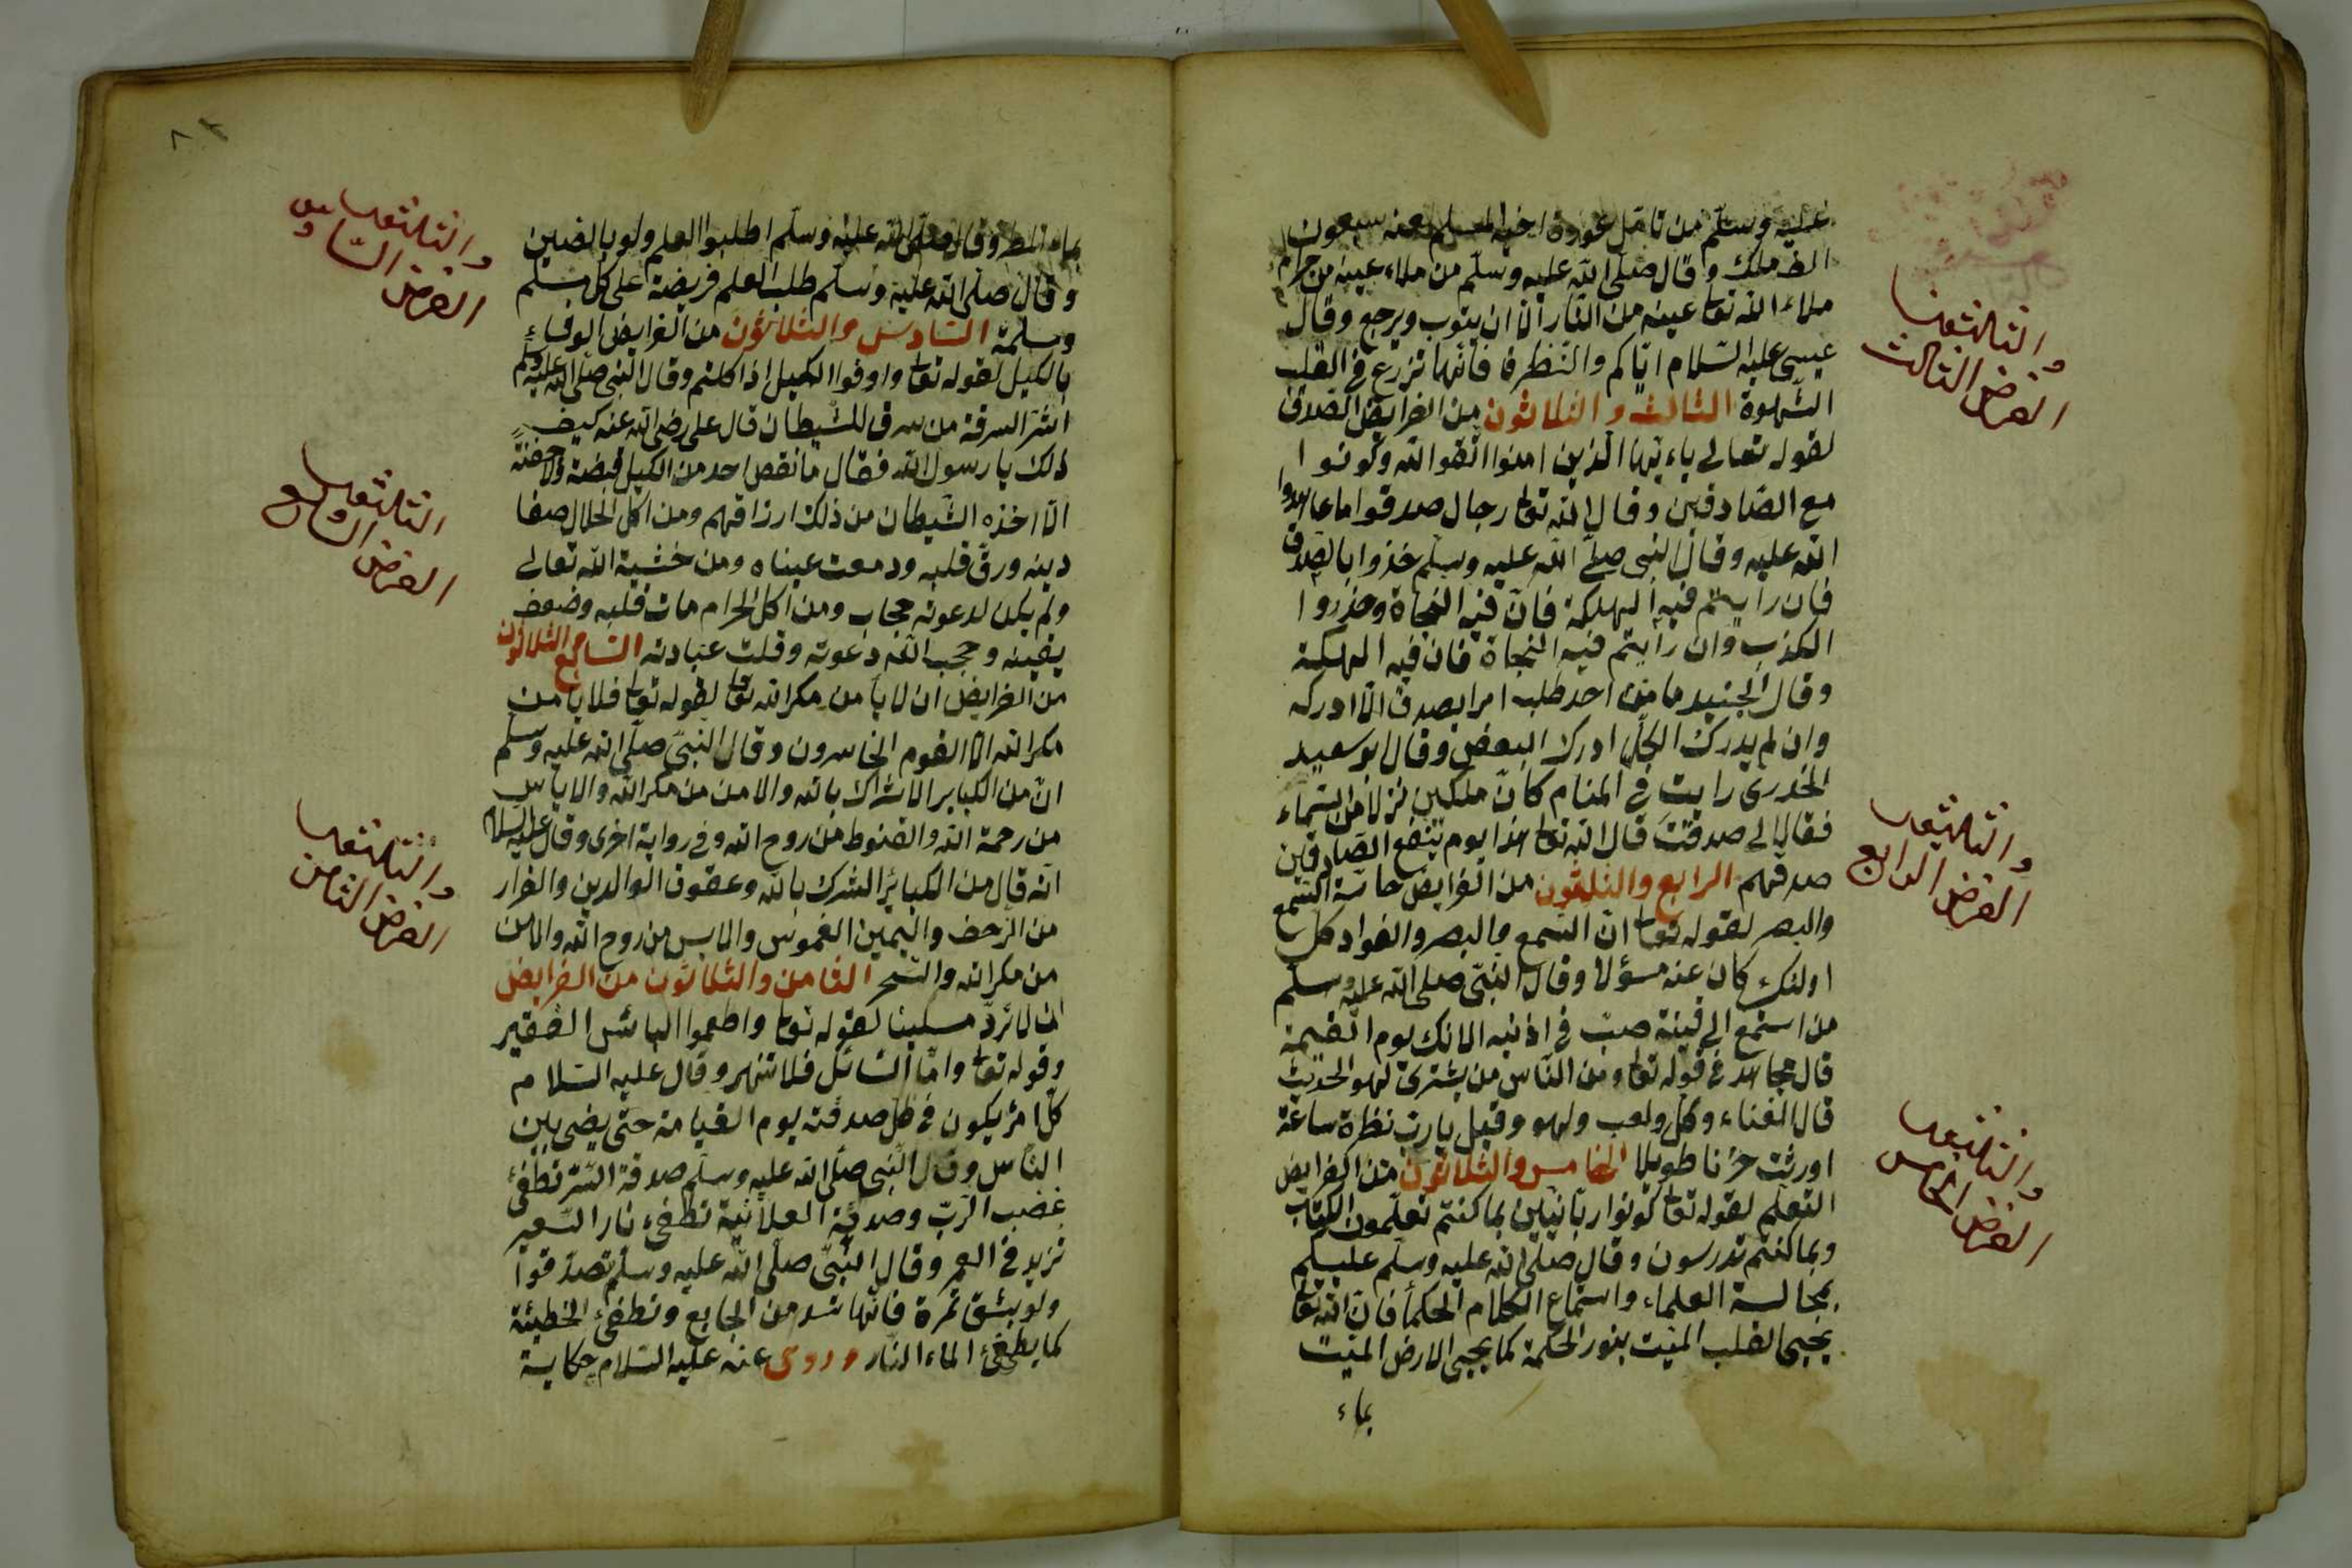 عليه وسلّم من تامل عورة اخيه المسلم لعنه سبعون
الف ملك وقال صلّى الله عليه وسلّم من ملاء عينه من حرام
ملاء الله تعا عينه من النّار الّا ان يتوب ويرجع وقال
عيسى عليه السّلام ايّاكم والنّظرة فانّها تزرع في القلب
الشّهوة الثالث والثلاثون من الفرايض الصّدق
لقوله تعالى ياءيّها الّذين امنوا اتّقوا الله وكونوا
مع الصّادقين وقال الله تعا رجال صدقوا ما عاهدوا
الله عليه وقال النبي صلّى الله عليه وسلّم خذوا بالصّدق
فان رايتم فيه الهلكة فانّ فيه النجاة وحذروا
الكذب وان رايتم فيه النجاة فان فيه الهلكة
وقال الجنيد ما من احد طلب امرا بصدق الّا ادركه
وان لم يدرك الكلّ ادرك البعض وقال ابو سعيد
الخدرى رايت في المنام كانّ ملكين نزلا من السّماء
فقالا لى صدقت قال الله تعا هذا يوم ينفع الصّادقين
صدقهم الرابع والثلثون من الفرايض حاسّة السّمع
والبصر لقوله تعا انّ السّمع والبصر والفواد كل
اولئك كان عنه مسؤلا وقال النبّى صلى الله عليه وسلّم
من استمع الى قينة صبّ في اذنيه الانك يوم القيمة
قال مجاهد في قوله تعا ومن النّاس من يشترى لهو الحديث
قال الغناء وكل ولعب ولهو وقيل يا ربّ نظرة ساعة
اورثت حزنا طويلا الخامس والثلاثون من الفرايض
التعلّم لقوله تعا كونوا ربّانيّين بما كنتم تعلّمون الكتاب
وبما كنتم تدرسون وقال صلّى الله عليه وسلّم عليكم
بمجالسة العلماء واستماع الكلام الحكماء فانّ الله تعا
يحيى القلب الميّت بنور الحكمة كما يحيى الارض الميّت
بماء
والثلثون
الفرض الثالث
والثلثون
الفرض الرابع
والثلثون
الفرض الخامس
بماء المطر وقال صلّى الله عليه وسلّم اطلبوا العلم ولو بالصّين
وقال صلّى الله عليه وسلّم طلب العلم فريضة على كل مسلم
ومسلمة السّادس والثلاثون من الفرايض الوفاء
بالكيل لقوله تعا واوفوا الكيل اذا كلتم وقال النّبى صلّى الله عليه وسلّم
اشرّ السرقة من سرق للشّيطان قال على رضى الله عنه كيف
ذلك يا رسول الله فقال ما نقص احد من الكيل قبضة ولا حفنة
الّا اخذه الشّيطان من ذلك ارزاقهم ومن اكل الحلال صفا
دينه ورقّ قلبه ودمعت عيناه ومن خشية الله تعالى
ولم يكن لدعوته حجاب ومن اكل الحرام مات قلبه وضعف
يقينه وحجب الله دعوته وقلت عبادته السّابع الثلاثون
من الفرايض ان لا يأمن مكر الله تعا لقوله تعا فلا يأمن
مكر الله الا القوم الخاسرون وقال النّبىّ صلّى الله عليه وسلّم
انّ من الكباير الاشراك بالله والامن من مكر الله والاياس
من رحمة الله والقنوط من روح الله وفي رواية اخرى وقال عليه السلام
انّه قال من الكبائر الشرك بالله وعقوق الوالدين والفرار
من الزّحف واليمين الغموس والايس من روح الله والامن
من مكر الله والسّحر الثامن والثلاثون من الفرايض
ان لا تردّ مسكينا لقوله تعا واطعموا البائس الفقير
وقوله تعا وامّا السّائل فلا تنهر وقال عليه السّلام
كلّ امرئ يكون في ظلّ صدقته يوم القيامة حتى يقضى بين
النّاس وقال النّبى صلّى الله عليه وسلّم صدقة السّرّ تطفئ
غضب الرّبّ وصدقة العلانية تطفىء نار السّعير
تزيد في العمر وقال النّبّى صلّى الله عليه وسلّم تصدّقوا
ولو بشق تمرة فانّها تسد من الجايع وتطفئ الخطيئة
كما يطفئ الماء النار وروى عنه عليه السّلام حكاية
والثلثون
الفرض السّادس
الثلثون
الفرض السّابع
والثلثون
الفرض الثامن